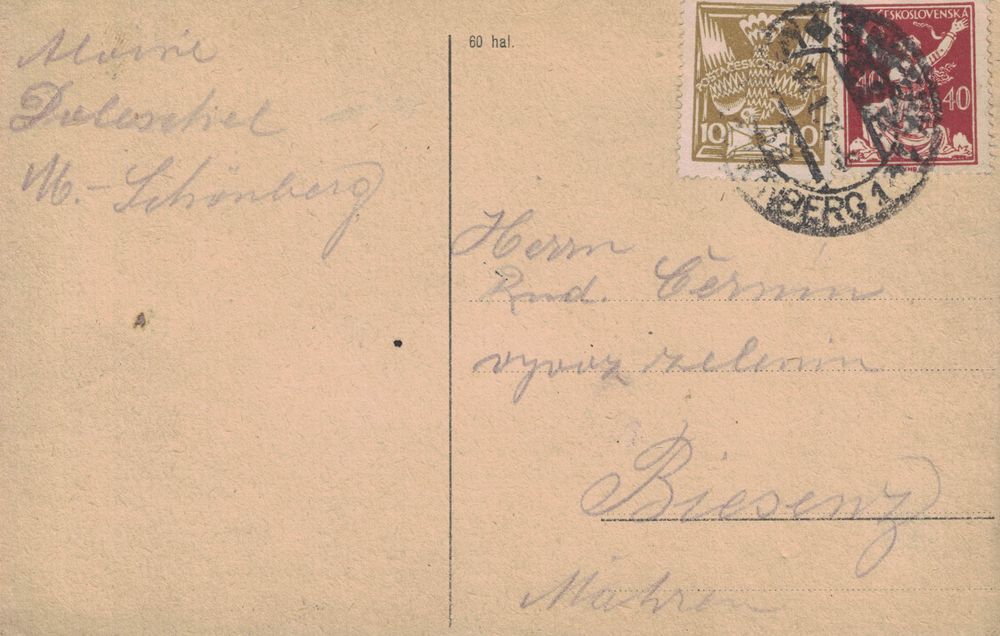 Aloisie
Doleschel
M.-Schönberg
60 hal.
POŠTA ČESKOSLOV
10 10
ČESKOSLOVENSKÁ
40 40
NBERG 1
Herrn
Rud. Černin
vyvoz zelenin
Bisenz
Mähren